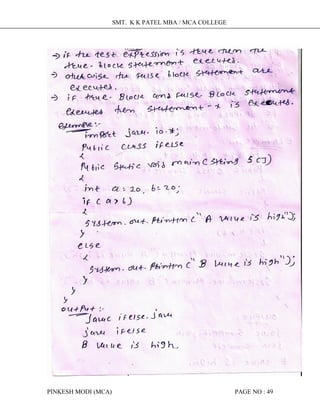 SMT. K K PATEL MBA / MCA COLLEGE
→ if the test expression is true then the
true - block statement executed.
→ otherwise the false block statement are
executed.
→ if true - Block and false Block statement
executed then statement - x is executed.
example:-
import java.io.*;
Public class ifelse
{
Public static void main (String s[])
{
int a=10, b=20;
if (a>b)
{
System.out.Println("A value is high");
}
else
{
System.out.Println("B value is high");
}
}
}
output :-
Javac ifelse.java
java ifelse
B value is high.
PINKESH MODI (MCA)
PAGE NO : 49